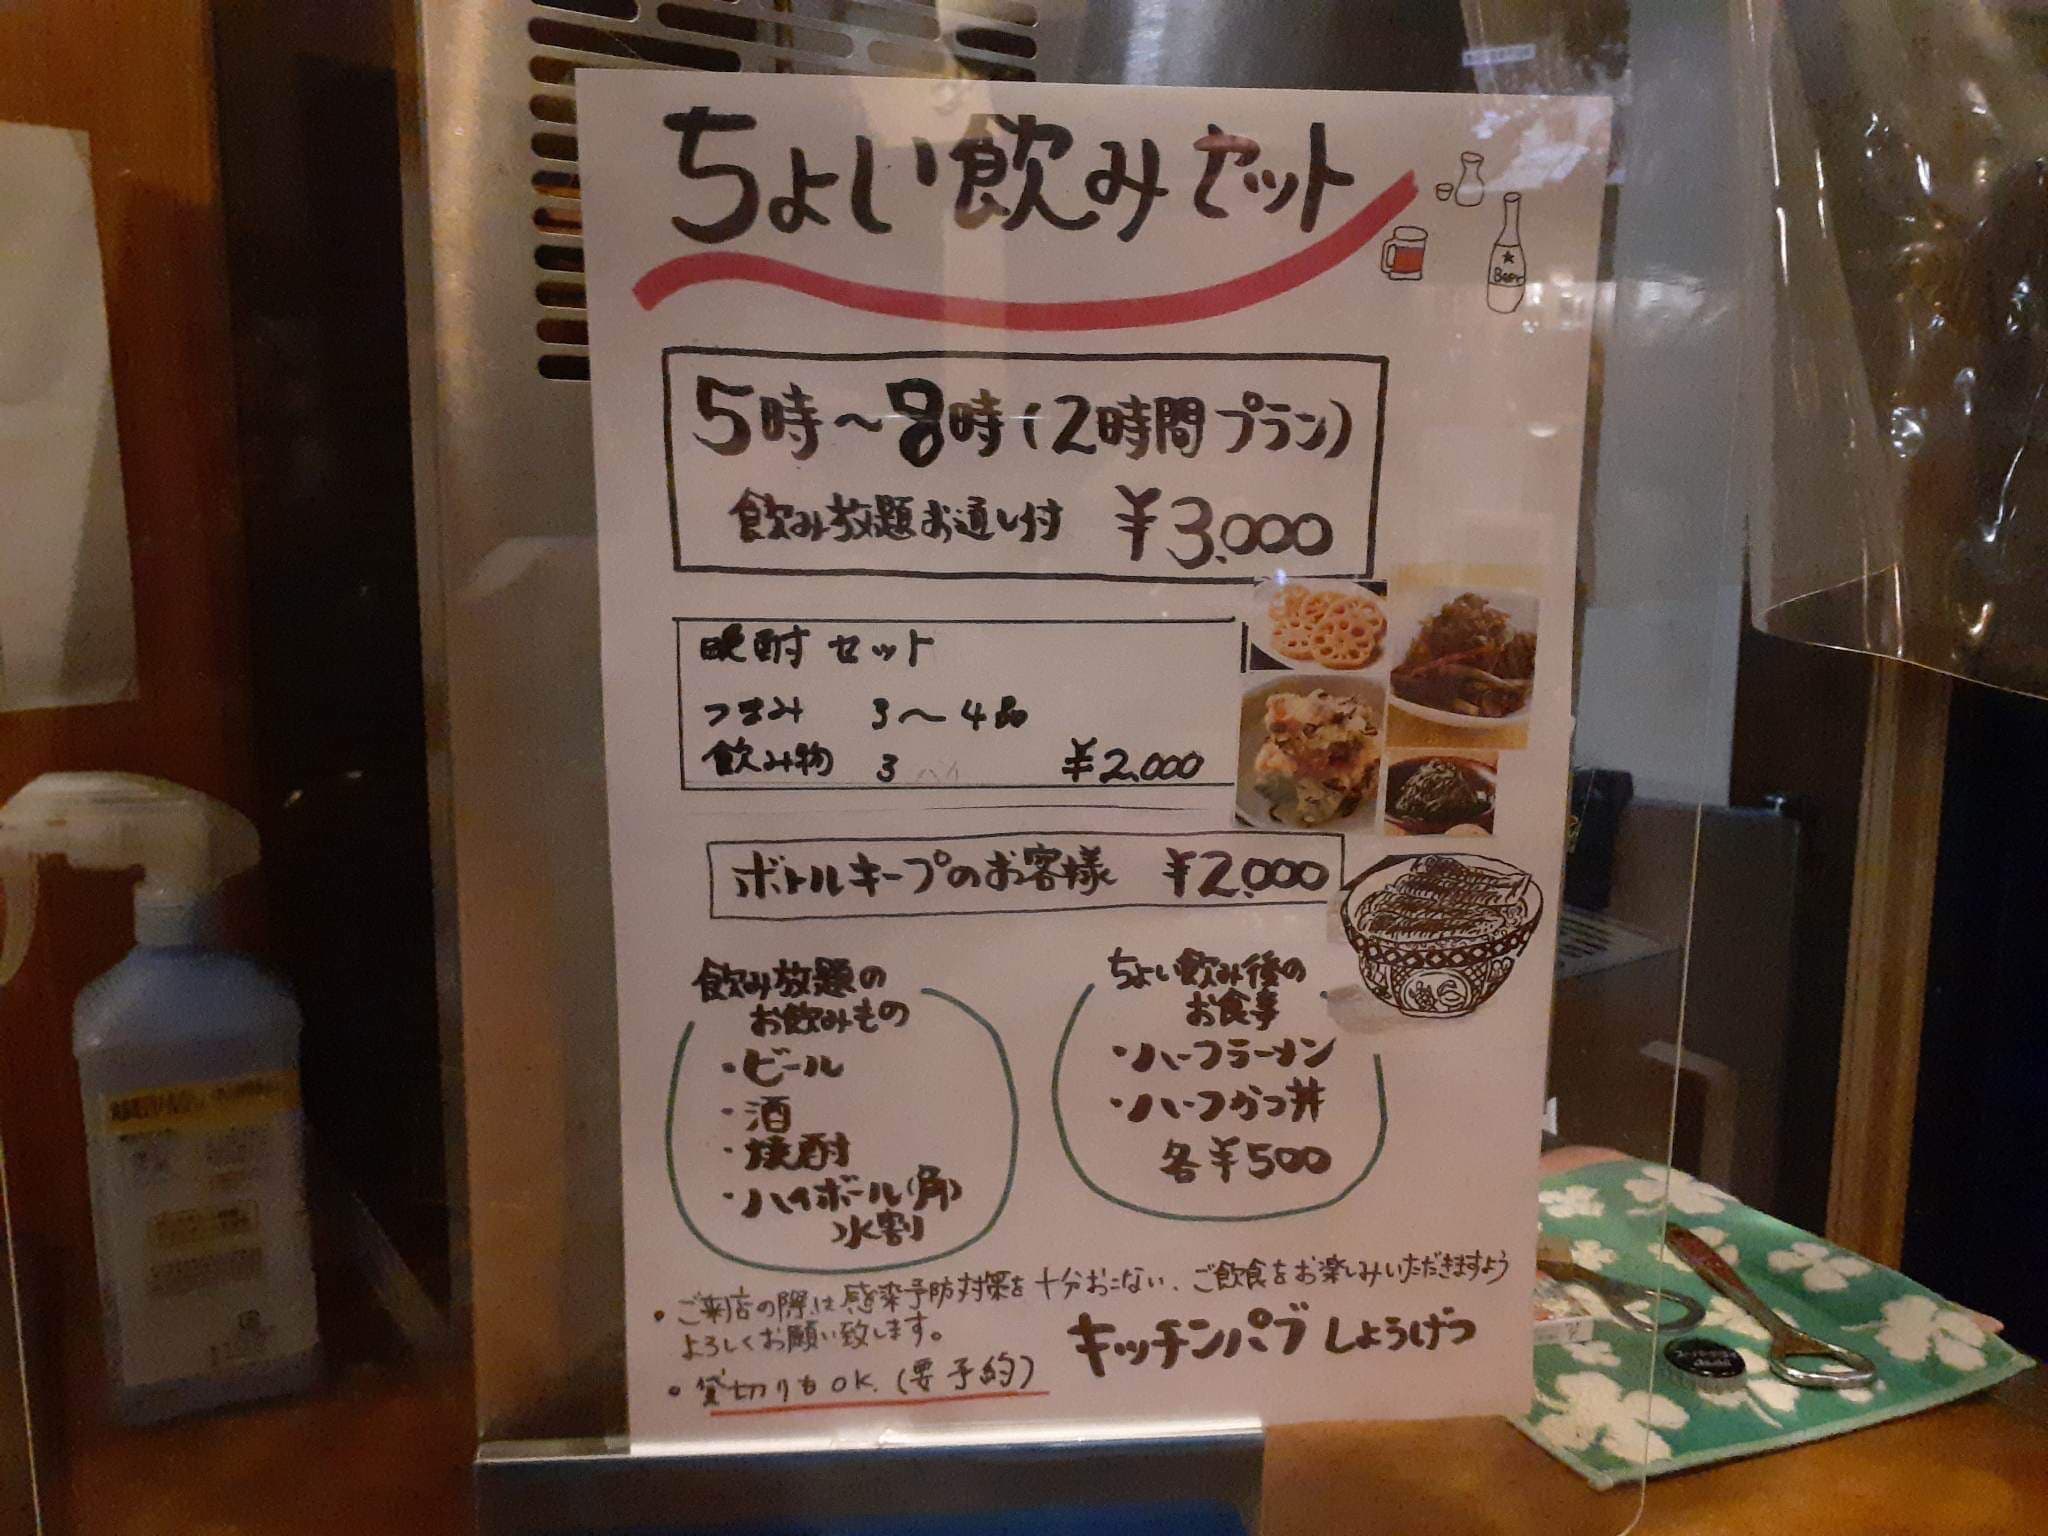 ちょい飲みセット
Beer
5時〜8時(2時間プラン)
飲み放題お通し付 ¥3,000
晩酌セット
つまみ 3〜4品
飲み物 3 ¥2,000
ボトルキープのお客様 ¥2,000
飲み放題の
お飲みもの
・ビール
・酒
・焼酎
・ハイボール(角)
水割
ちょい飲み後の
お食事
・ハーフラーメン
・ハーフかつ丼
各¥500
・ご来店の際は感染予防対策を十分おこない、ご飲食をお楽しみいただきますよう
よろしくお願い致します。
キッチンパブ しょうげつ
・貸切りもOK.(要予約)